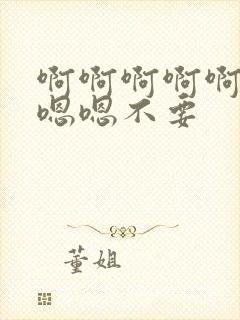 啊啊啊啊啊
嗯嗯不要
董姐